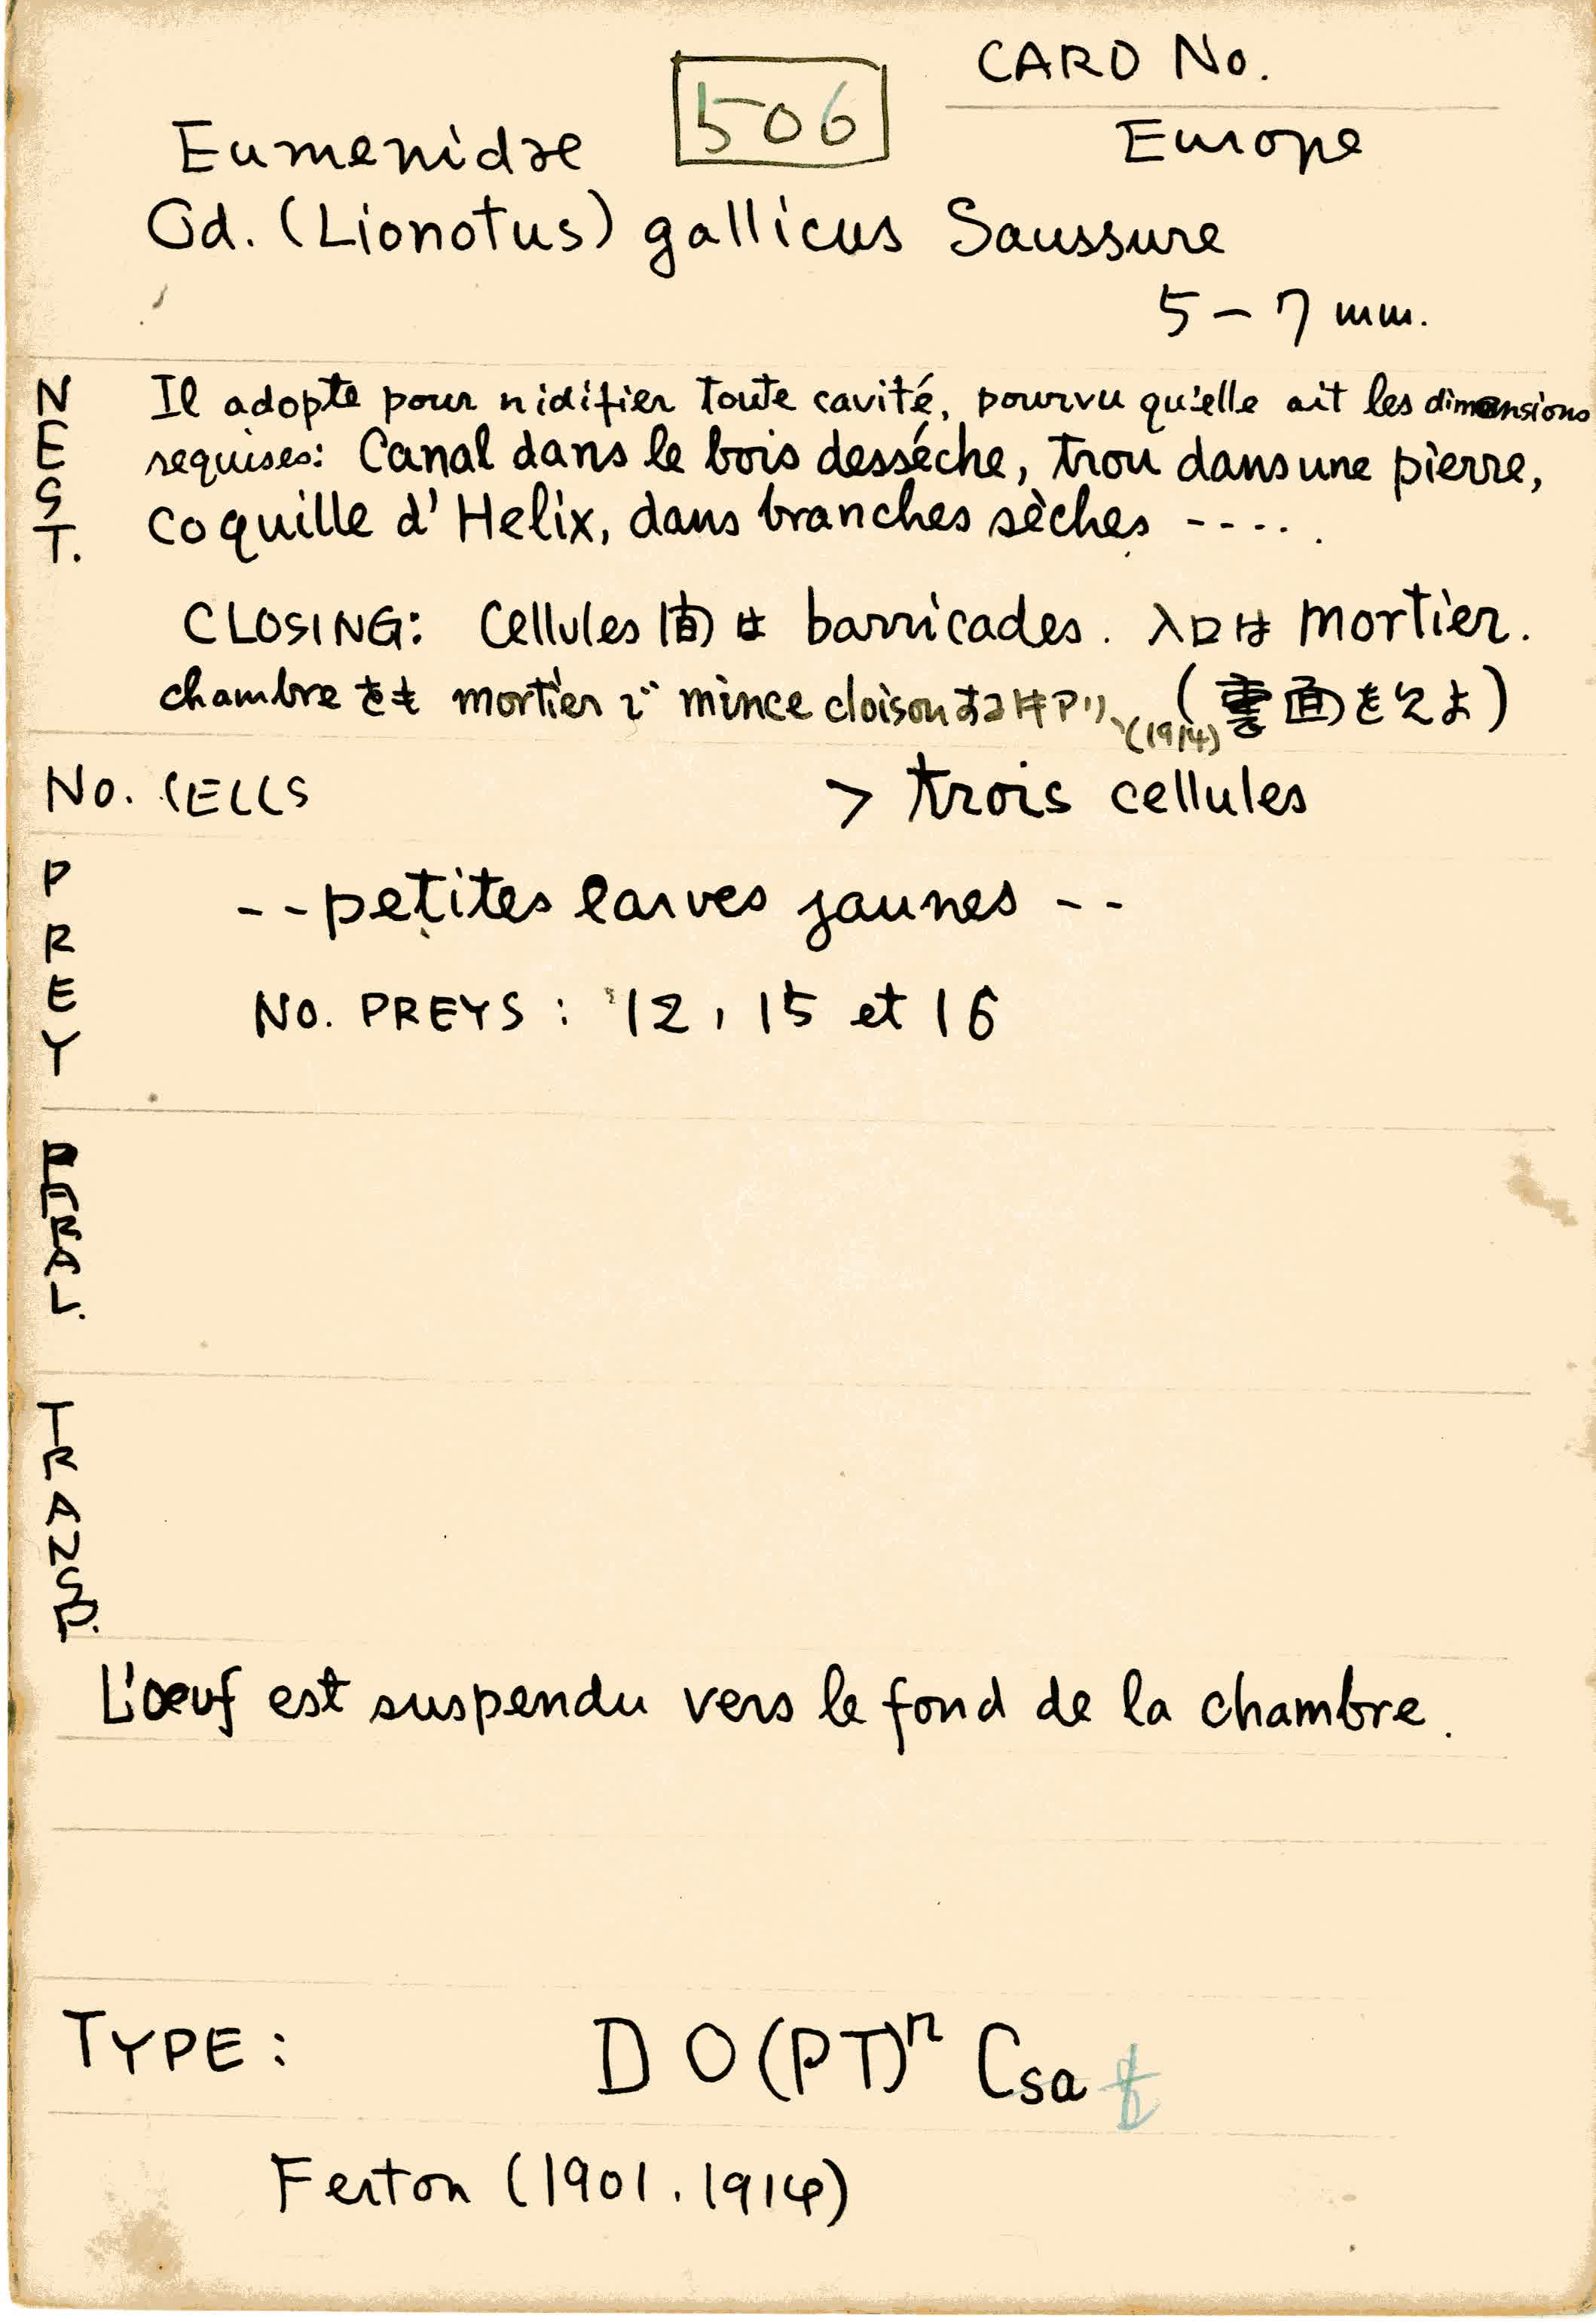 CARD No.
506
Eumenidae Europe
Od. (Lionotus) gallicus Saussure
5-7 mm.
NEST. Il adopte pour nidifier toute cavité, pourvu qu'elle ait les dimensions
requises: Canal dans le bois desséche, trou dans une pierre,
coquille d'Helix, dans branches sèches ----.
CLOSING: Cellules 間は barricades. 入口は mortier.
chambre をも mortier で mince cloison する時アリ、(1914) (裏面をみよ)
No. CELLS > trois cellules
PREY --petites larves jaunes--
NO. PREYS: 12, 15 et 16
PARAL.
TRANSP.
L'œuf est suspendu vers le fond de la chambre.
TYPE: D O (PT)ⁿ Csa f
Ferton (1901, 1914)